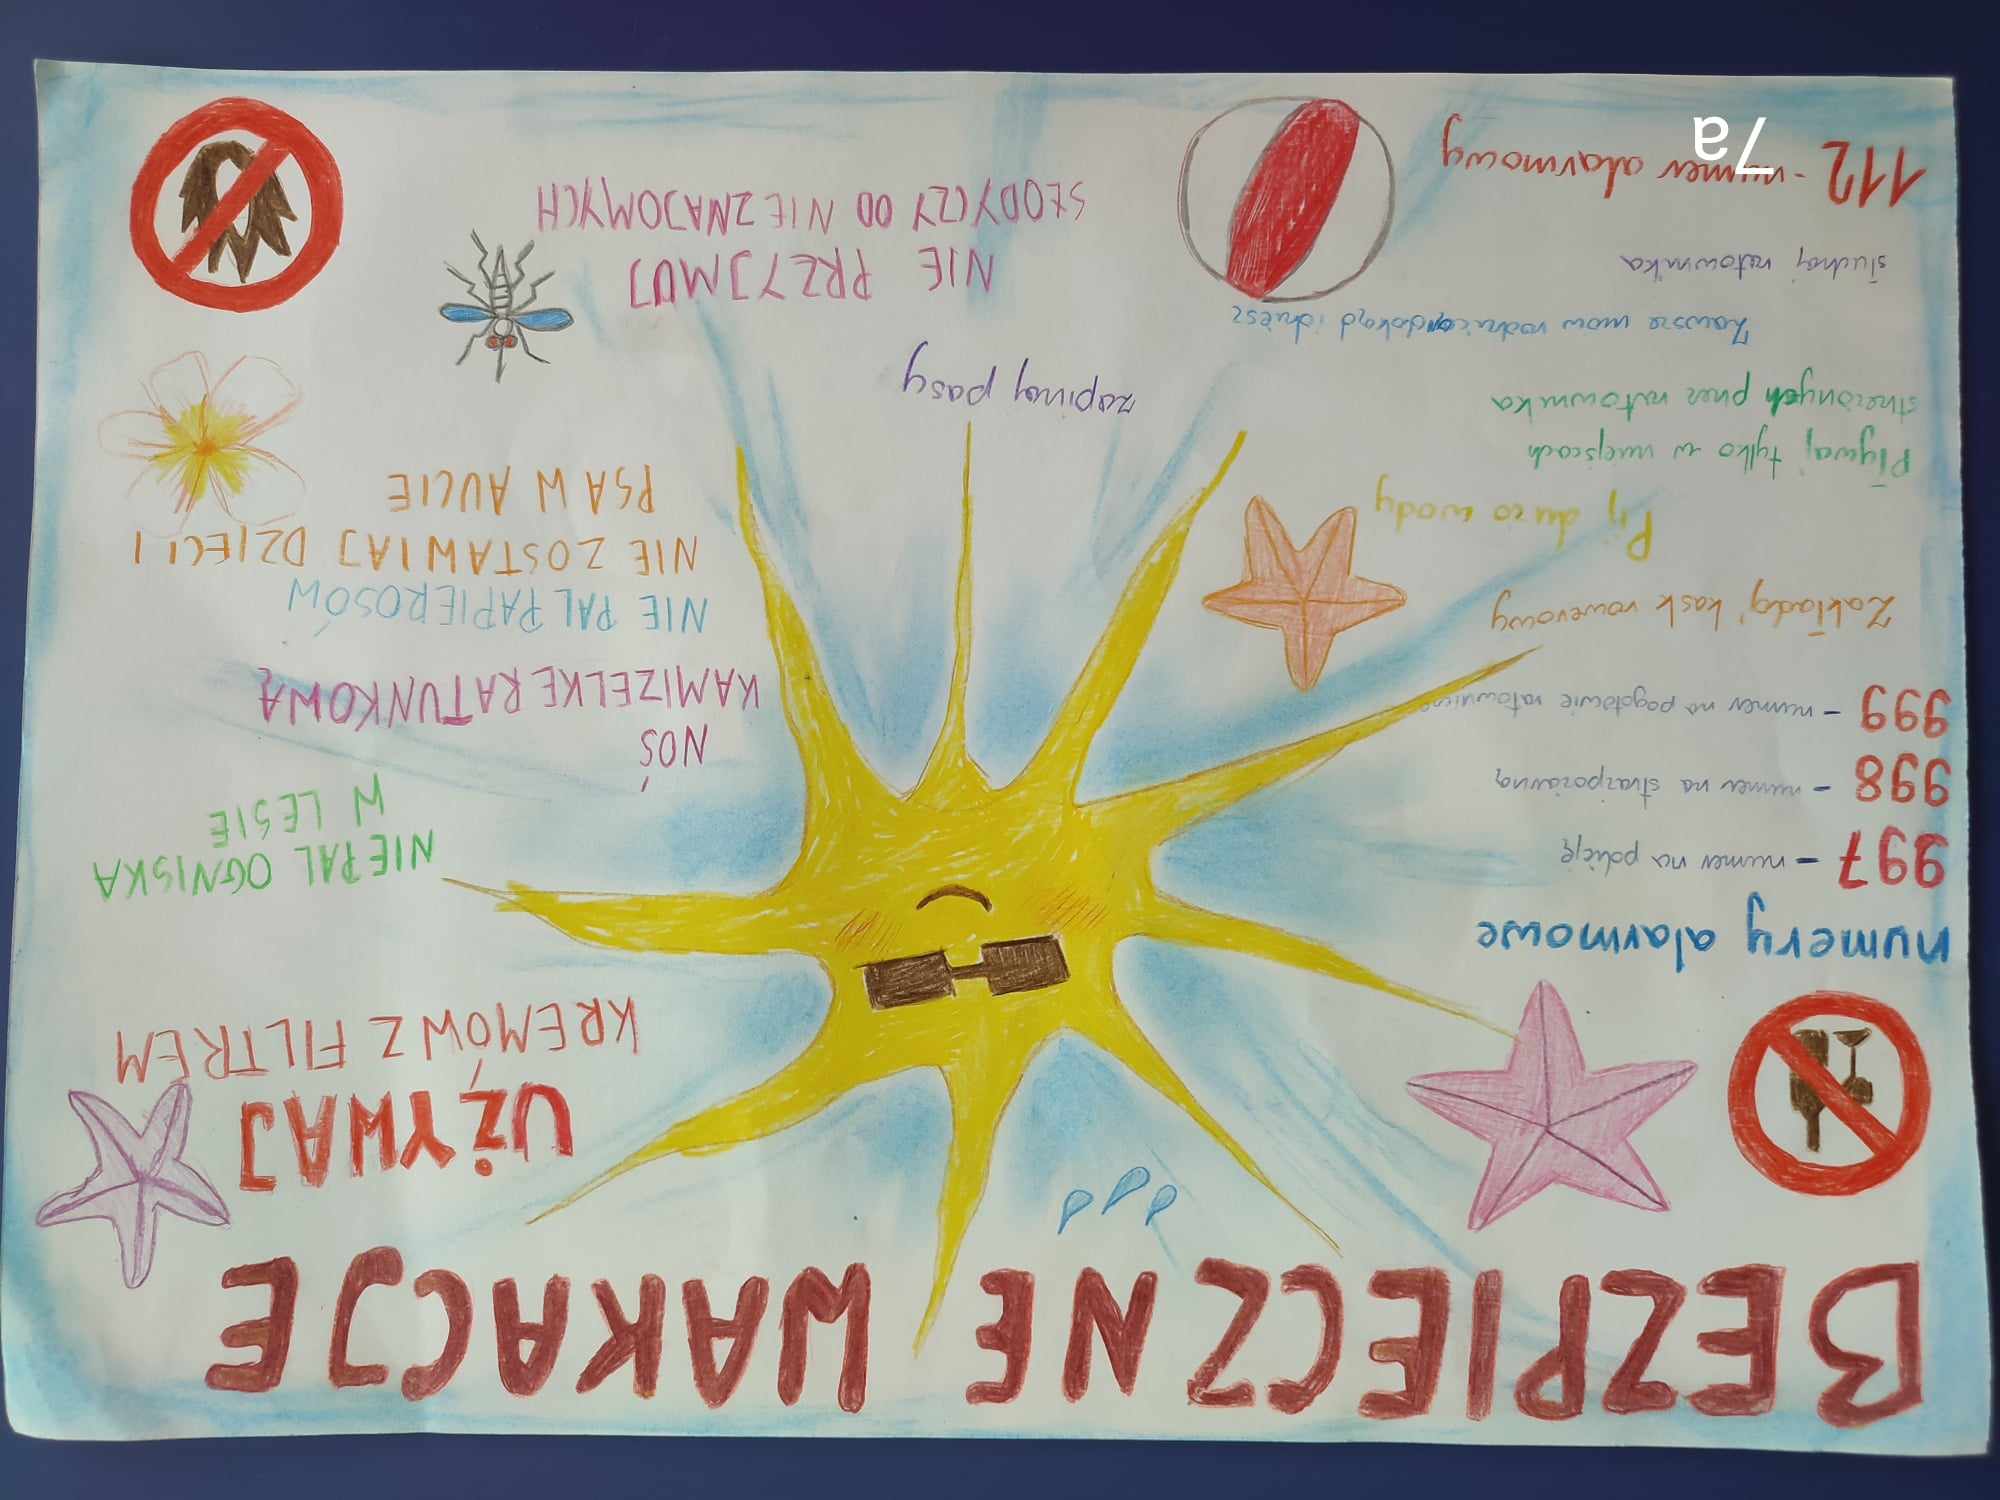 BEZPIECZNE WAKACJE
numery alarmowe
997 - numer na policję
998 - numer na straż pożarną
999 - numer na pogotowie ratunkowe
Zakładaj kask rowerowy
Pij dużo wody
Pływaj tylko w miejscach
strzeżonych przez ratownika
Zawsze mów rodzicom dokąd idziesz
słuchaj ratownika
112 - numer alarmowy
7a
zapinaj pasy
UŻYWAJ
KREMÓW Z FILTREM
NIE PAL OGNISKA
W LESIE
NOŚ
KAMIZELKE RATUNKOWĄ
NIE PAL PAPIEROSÓW
NIE ZOSTAWIAJ DZIECI I
PSA W AUCIE
NIE PRZYJMUJ
SŁODYCZY OD NIEZNAJOMYCH